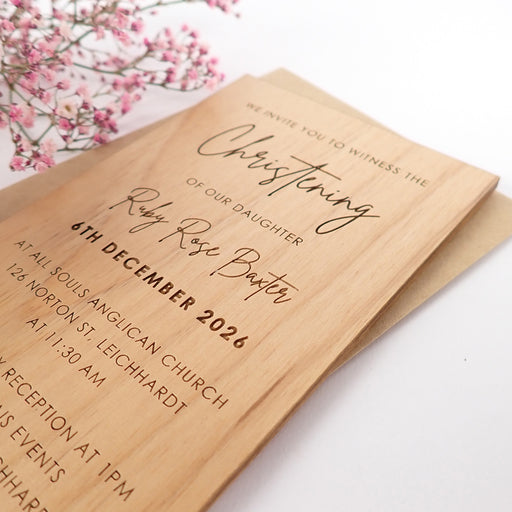 WE INVITE YOU TO WITNESS THE
Christening
OF OUR DAUGHTER
Ruby Rose Baxter
6TH DECEMBER 2026
AT ALL SOULS ANGLICAN CHURCH
126 NORTON ST, LEICHHARDT
AT 11:30 AM
RECEPTION AT 1PM
EVENTS